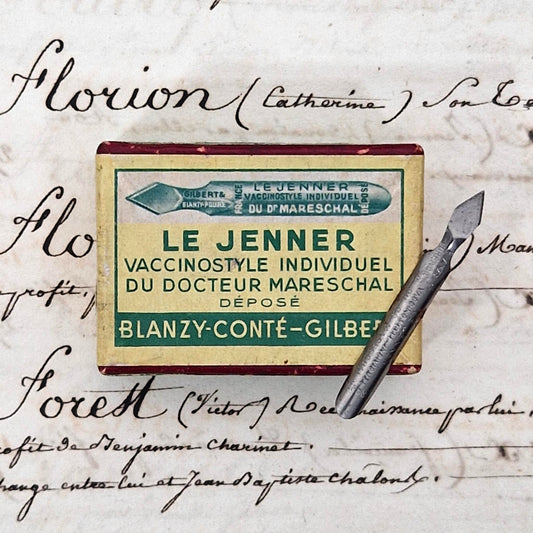 Florion (Catherine) Son
GILBERT &
BLANZY-POURE
FRANCE
LE JENNER
VACCINOSTYLE INDIVIDUEL
DU DR MARESCHAL
DÉPOSÉ
LE JENNER
VACCINOSTYLE INDIVIDUEL
DU DOCTEUR MARESCHAL
DÉPOSÉ
BLANZY-CONTÉ-GILBE
Flo
profit.
Forest (Victor) Reconnaissance par lui.
profit de Benjamin Charinet.
change entre lui et Jean Baptiste Chalond.